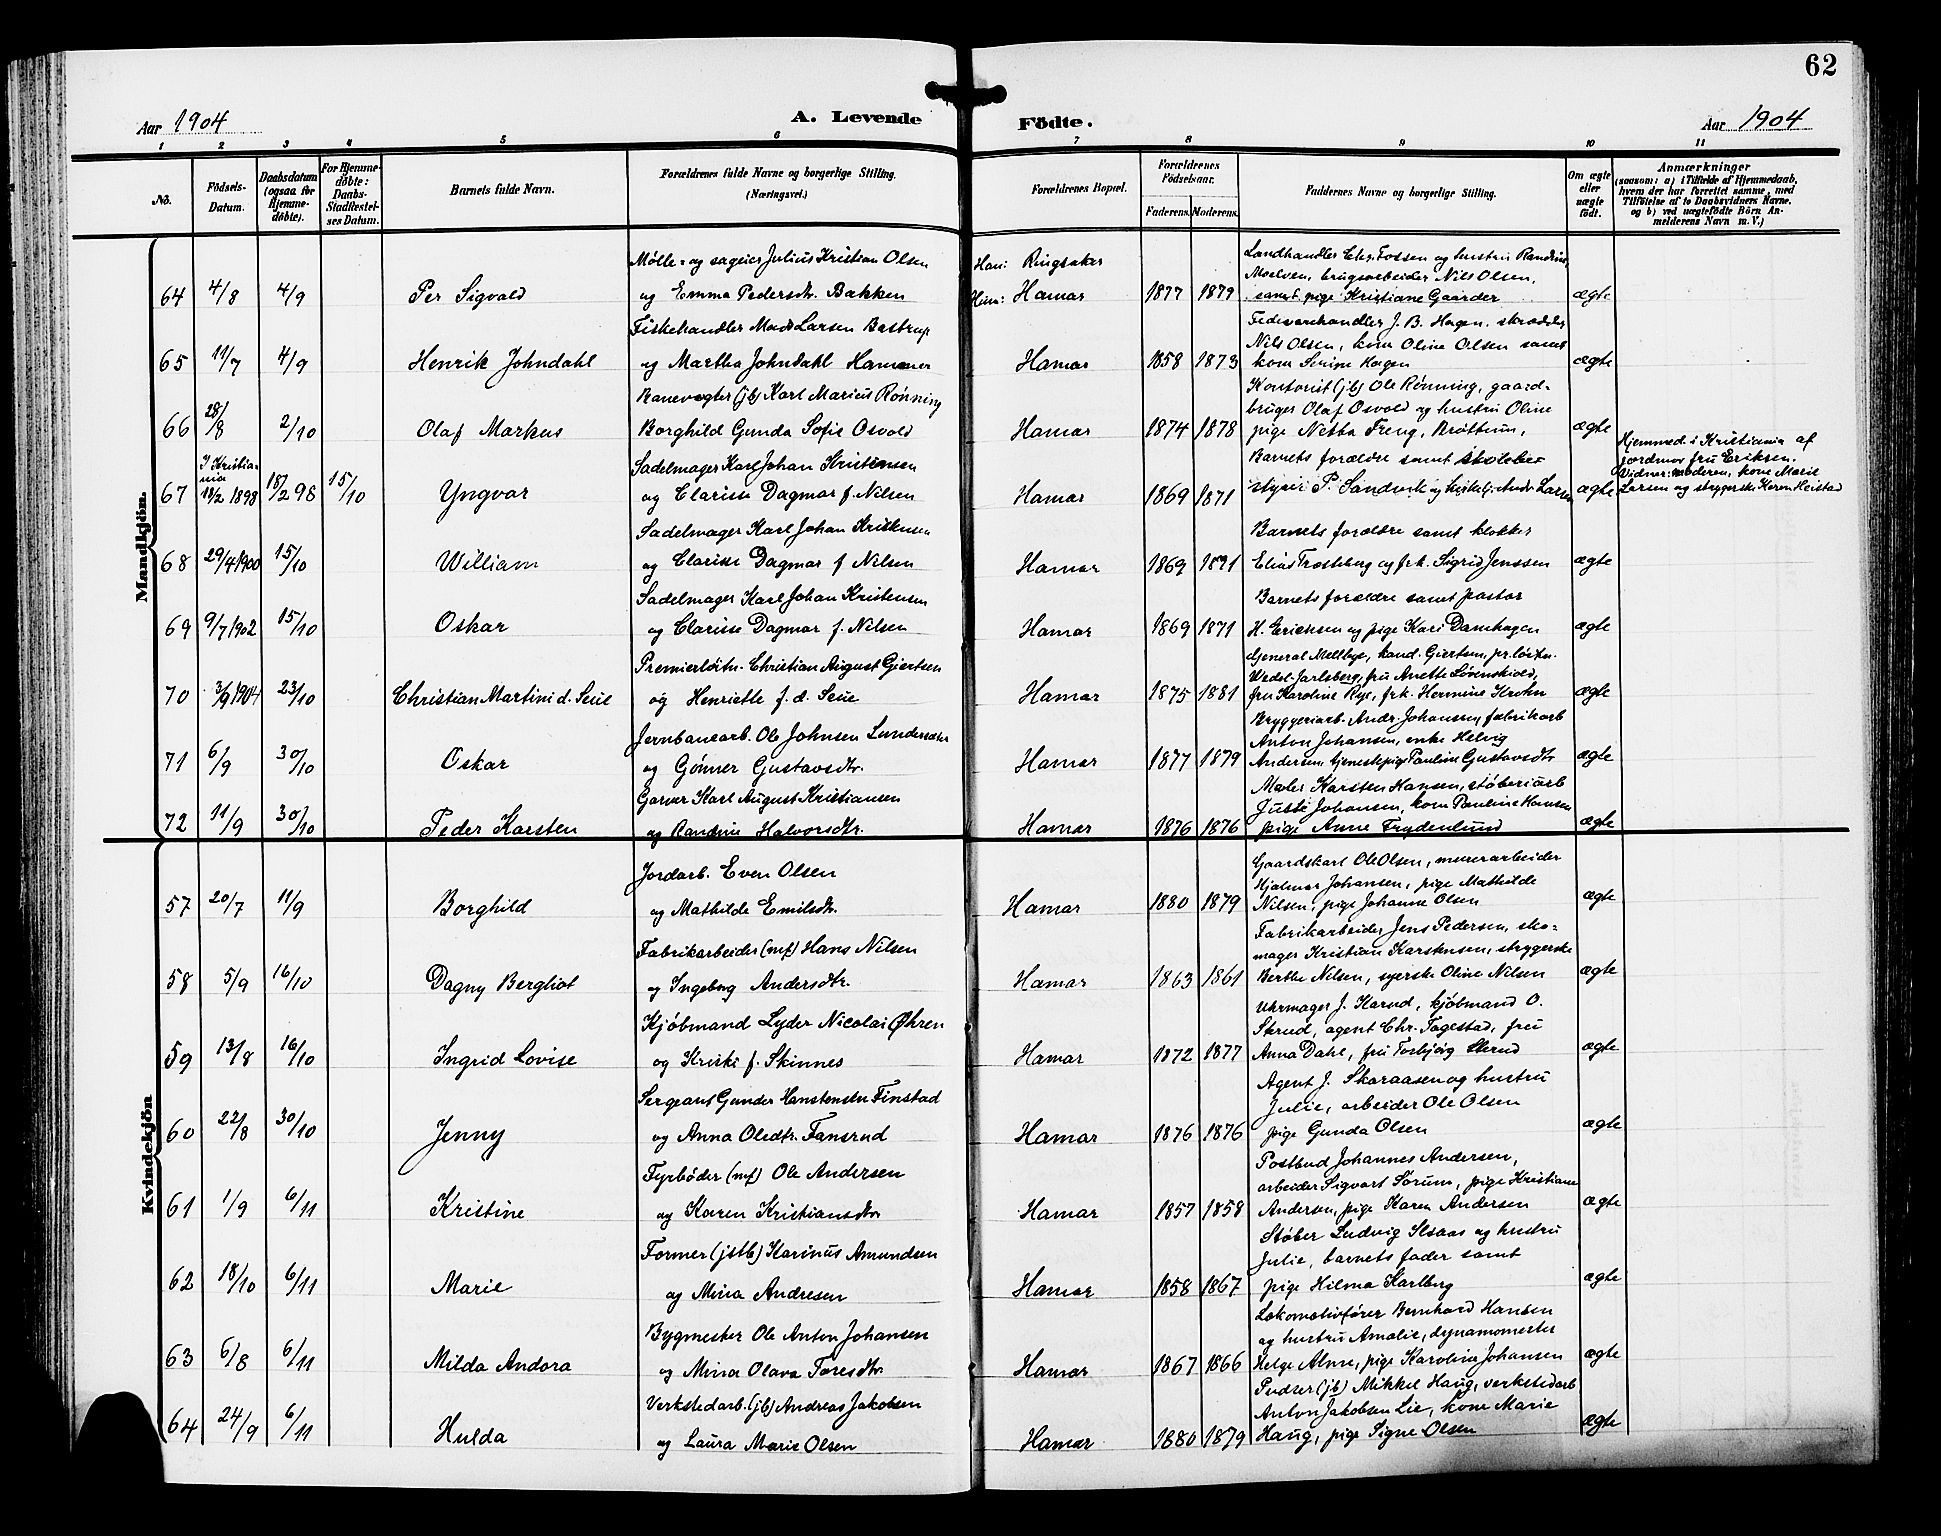 62
Aar 1904 A. Levende Födte. Aar 1904
1 2 3 4 5 6 7 8 9 10 11
No. Födsels-Datum. Daabsdatum (ogsaa för Hjemmedöbte). For Hjemmedöbte: Daabs-Stadfestelses Datum. Barnets fulde Navn. Forældrenes fulde Navne og borgerlige Stilling. (Næringsvei.) Forældrenes Bopæl. Forældrenes Födselsaar. Faderens. Moderens. Faddernes Navne og borgerlige Stilling. Om ægte eller uægte födt. Anmærkninger (saasom: a) i Tilfælde af Hjemmedaab, hvem der har forrettet samme, med Tilföielse af to Daabsvidners Navne, og b) ved uægtefödte Börn Anmelderens Navn m. V.)
Mandkjön.
Mølle- og sageier Julius Kristian Olsen Han: Ringsaker Landhandler Chr. Fossen og hustru Randine
Moelven, brugsarbeider Nils Olsen,
64 4/8 4/9 Per Sigvald og Emma Pedersdtr. Bakken Hun: Hamar 1877 1879 samt pige Kristiane Gaarder ægte
Fiskehandler Mads Larsen Bastrup Fedevarehandler J. B. Hagen, skrædder
Nils Olsen, kone Oline Olsen samt
65 11/7 4/9 Henrik Johndahl og Martha Johndahl Hamar 1858 1873 kone Hagen ægte
Banevogter (jb) Karl Marius Rønning Kontorist (jb) Ole Rønning, gaard-
bruger Olaf Osvold og hustru Oline
66 28/8 2/10 Olaf Markus Borghild Gunda Sofie Osvold Hamar 1874 1878 pige Netta Freng, Brøttum, ægte
Sadelmager Karl Johan Kristensen Barnets forældre samt Hjemmed. i Kristiania af
jordmor fru Eriksen.
Vidner: moderen, kone Marie
67 I Kristiania 18/2 1898 18/2 98 15/10 Yngvar og Clarisse Dagmar f. Nilsen Hamar 1869 1871 P. Sandvik og Andr. Larsen ægte Larsen og strygerske Karen Heistad
Sadelmager Karl Johan Kristensen Barnets forældre samt klokker
68 29/4 1900 15/10 William og Clarisse Dagmar f Nilsen Hamar 1869 1891 Elias Trosteberg og frk. Sigrid Jenssen ægte
Sadelmager Karl Johan Kristensen Barnets forældre samt pastor
69 9/7 1902 15/10 Oskar og Clarisse Dagmar f. Nilsen Hamar 1869 1871 H. Erichsen og pige Kari Damhagen ægte
Premierløitn. Christian August Gjertsen General Mellbye, kand. Gjertsen, pr.løitn.
Wedel-Jarlsberg, fru Anette Løvenskiold,
70 3/9 1904 23/10 Christian Martini d. Seue og Henriette f. d. Seue Hamar 1875 1881 fru Karoline Rye, frk. Hermine Krohn ægte
Jernbanearb. Ole Johnsen Lundersæter Bryggeriarb. Andr. Johansen, fabrikarb
Anton Johansen, enke Helvig
71 6/9 30/10 Oskar og Gønner Gustavsdtr. Hamar 1877 1879 Andersen, tjenestepige Pauline Gustavsdtr ægte
Garver Karl August Kristiansen Maler Karsten Hansen, støberiarb
Juste Johansen, kone Pauline Hansen
72 11/9 30/10 Peder Karsten og Randine Halvorsdtr. Hamar 1876 1876 pige Anne Frydenlund ægte
Kvindekjön
Jordarb. Even Olsen Gaardskarl Ole Olsen, murerarbeider
Hjalmar Johansen, pige Mathilde
57 20/7 11/9 Borghild og Mathilde Emilsdtr. Hamar 1880 1879 Nilsen, pige Johanne Olsen ægte
Fabrikarbeider (mf) Hans Nilsen Fabrikarbeider Jens Pedersen, sko-
mager Kristian Karstensen, strygerske
58 5/9 16/10 Dagny Bergliot og Ingeborg Andersdtr. Hamar 1863 1861 Berthe Nilsen, syerske Oline Nilsen ægte
Kjøbmand Lyder Nicolai Øhren Uhrmager J. Harud, kjøbmand O.
Skrud, agent Chr. Fagestad, fru
59 13/8 16/10 Ingrid Lovise og Kristi f. Skinnes Hamar 1872 1877 Anna Dahl, fru Torbjørg Skrud ægte
Sergeant Gunder Hanstensen Finstad Agent J. Skaraasen og hustru
Julie, arbeider Ole Olsen
60 22/8 30/10 Jenny og Anna Olesdtr. Fansrud Hamar 1876 1876 pige Gunda Olsen ægte
Fyrbøder (mf) Ole Andersen Postbud Johannes Andersen,
arbeider Sigvart Sørum, pige Kristiane
61 1/9 6/11 Kristine og Karen Kristiansdtr Hamar 1857 1858 Andersen, pige Karen Andersen ægte
Former (jstb) Karinus Amundsen Støber Ludvig Ilsaas og hustru
Julie, barnets fader samt
62 18/10 6/11 Marie og Mina Andresen Hamar 1858 1867 pige Hilma Karlberg ægte
Bygmester Ole Anton Johansen Lokomotivfører Bernhard Hansen
og hustru Amalie, dynamomester
63 6/8 6/11 Milda Andora og Mina Olava Toresdtr. Hamar 1867 1866 Helge Alme, pige Karoline Johansen ægte
Verkstedarb. (jb) Andreas Jakobsen Pudser (jb) Mikkel Haug, verkstedarb
Anton Jakobsen Lie, kone Marie
64 24/9 6/11 Hulda og Laura Marie Olsen Hamar 1880 1879 Haug, pige Signe Olsen ægte